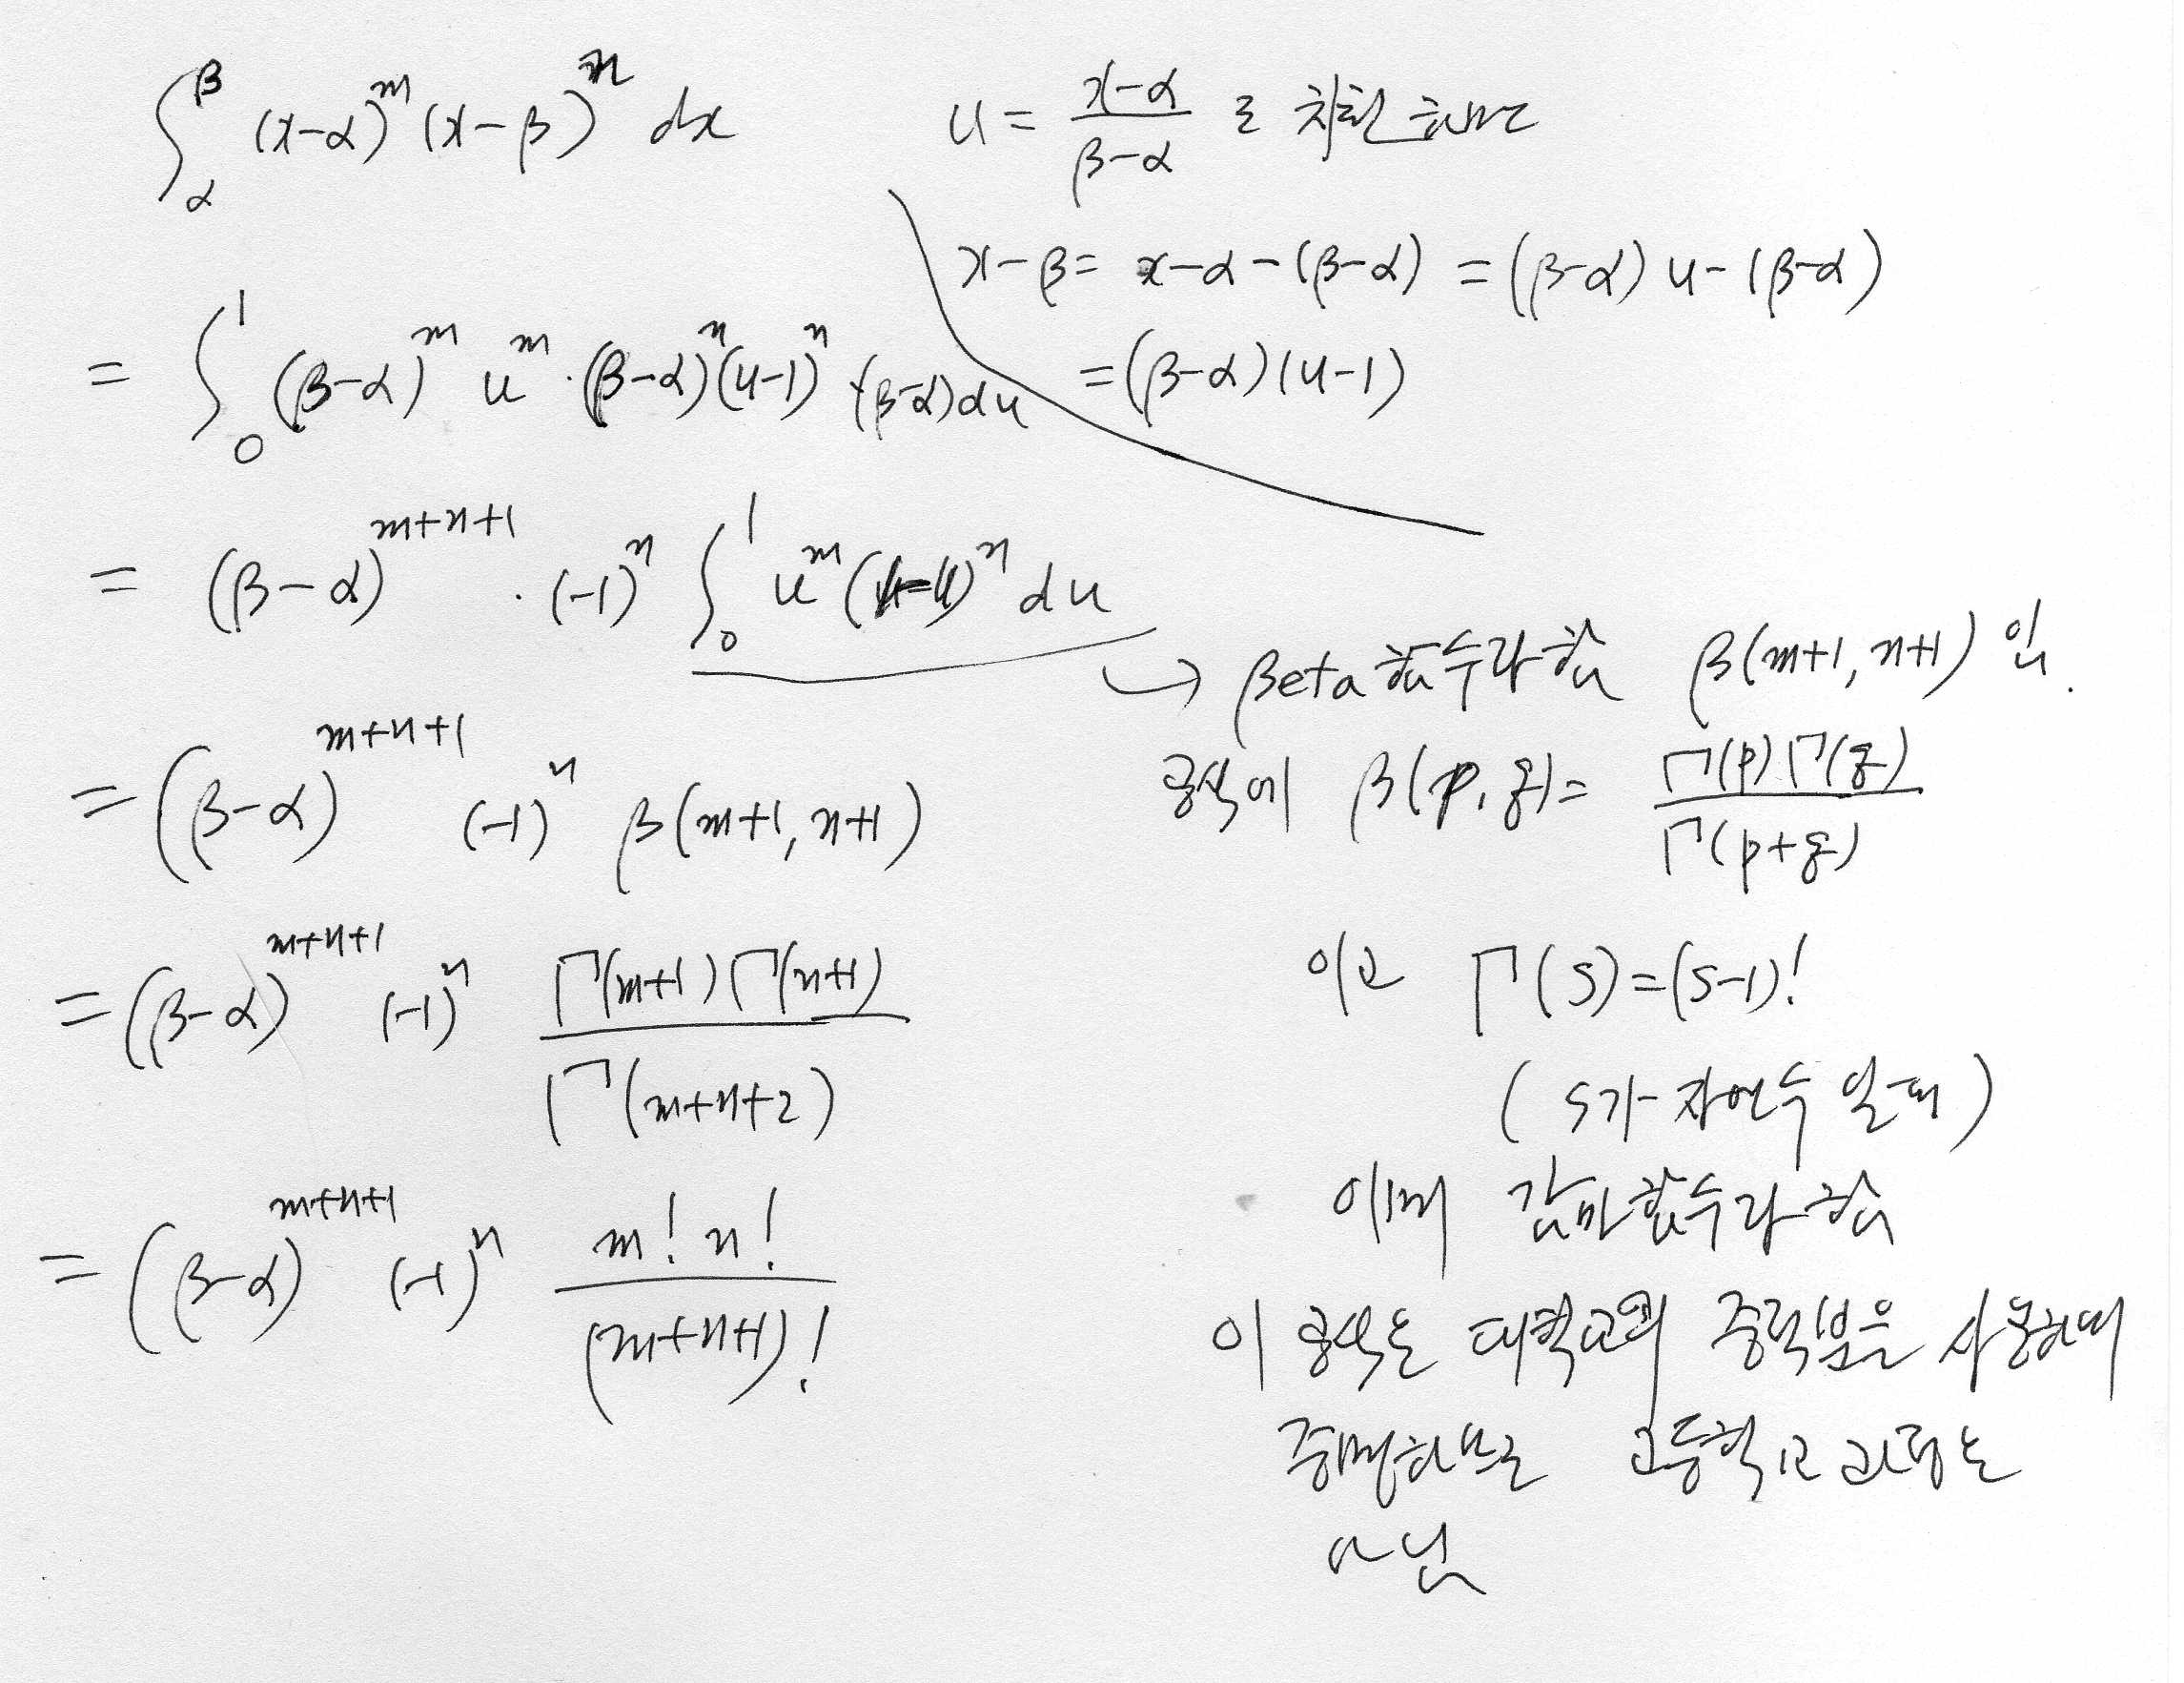 ∫_α^β (x-α)^m (x-β)^n dx
u = (x-α)/(β-α) 로 치환하면
x-β = x-α-(β-α) = (β-α)u-(β-α)
= (β-α)(u-1)
= ∫_0^1 (β-α)^m u^m · (β-α)^n (u-1)^n (β-α)du
= (β-α)^{m+n+1} · (-1)^n ∫_0^1 u^m (1-u)^n du
→ Beta 함수라 함 β(m+1, n+1) 임.
= (β-α)^{m+n+1} (-1)^n β(m+1, n+1)
공식에 β(p, q) = Γ(p)Γ(q)/Γ(p+q)
= (β-α)^{m+n+1} (-1)^n Γ(m+1)Γ(n+1)/Γ(m+n+2)
이고 Γ(s) = (s-1)!
(s가 자연수 일때)
이며 감마함수라 함
= (β-α)^{m+n+1} (-1)^n m! n!/(m+n+1)!
이 공식은 대학교의 중적분을 사용하며
증명하므로 고등학교 과정은
아님